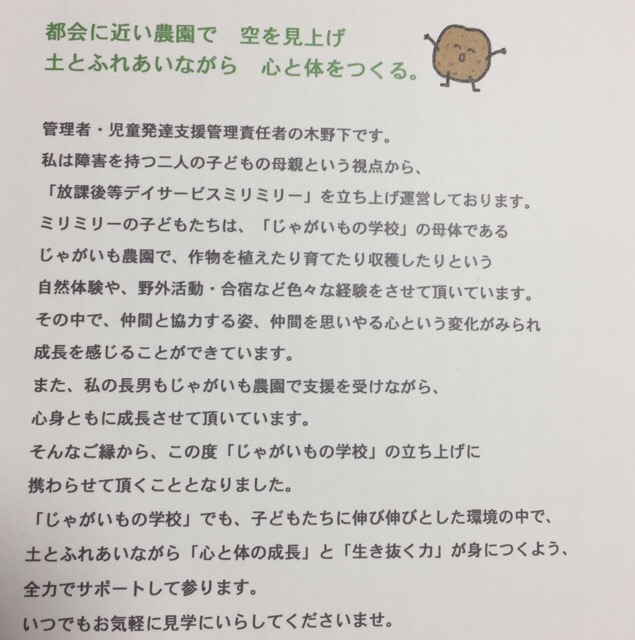 都会に近い農園で　空を見上げ
土とふれあいながら　心と体をつくる。
管理者・児童発達支援管理責任者の木野下です。
私は障害を持つ二人の子どもの母親という視点から、
「放課後等デイサービスミリミリー」を立ち上げ運営しております。
ミリミリーの子どもたちは、「じゃがいもの学校」の母体である
じゃがいも農園で、作物を植えたり育てたり収穫したりという
自然体験や、野外活動・合宿など色々な経験をさせて頂いています。
その中で、仲間と協力する姿、仲間を思いやる心という変化がみられ
成長を感じることができています。
また、私の長男もじゃがいも農園で支援を受けながら、
心身ともに成長させて頂いています。
そんなご縁から、この度「じゃがいもの学校」の立ち上げに
携わらせて頂くこととなりました。
「じゃがいもの学校」でも、子どもたちに伸び伸びとした環境の中で、
土とふれあいながら「心と体の成長」と「生き抜く力」が身につくよう、
全力でサポートして参ります。
いつでもお気軽に見学にいらしてくださいませ。